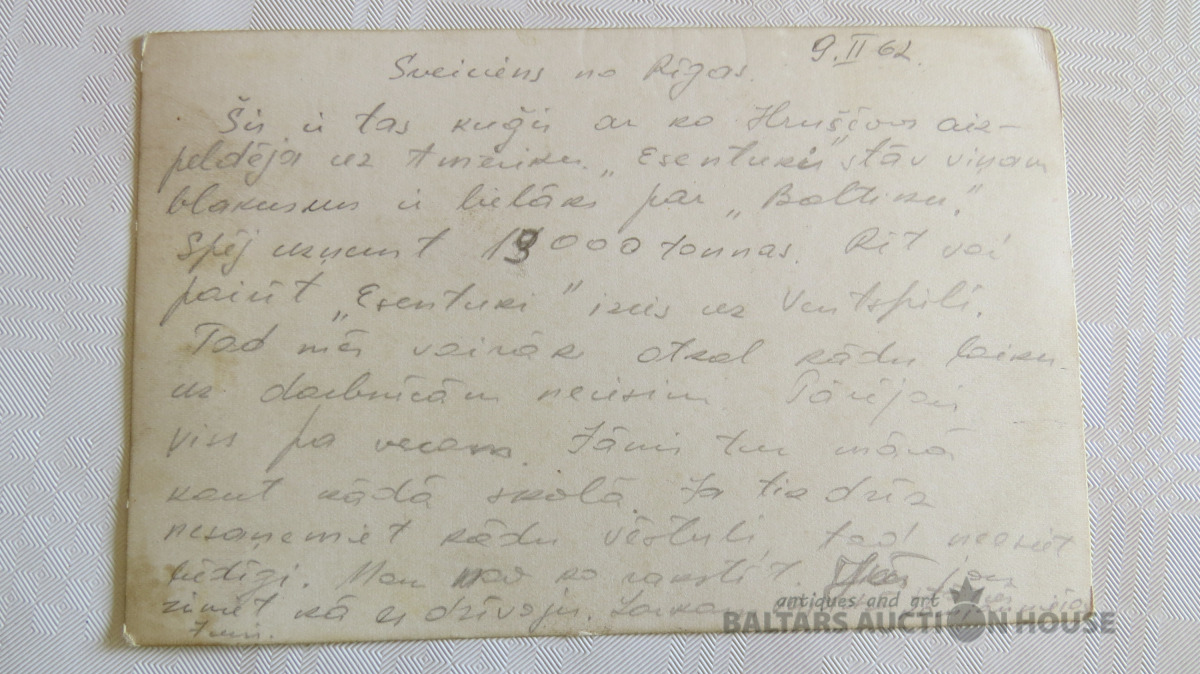 9.II 62.
Sveiciens no Rīgas.
Šis ir tas kuģis ar ko Hruščovs aiz-
peldēja uz Ameriku. „Esentuki" stāv viņam
blakus un ir lielāks par „Baltiku."
Spēj uzņemt 13000 tonnas. Rīt vai
parīt „Esentuki" izies uz Ventspili.
Tad mēs vairāk atkal kādu laiku
uz darbnīcām neiesim Pārējais
viss pa vecam. Jāmis tur mācā
kaut kādā skolā. Ja tik drīz
nesaņemiet kādu vēstuli tad neesiet
bēdīgi. Man nav ko rakstīt. jau
zimet kā es dzīvoju.
antiques and art
BALTARS AUCTION HOUSE